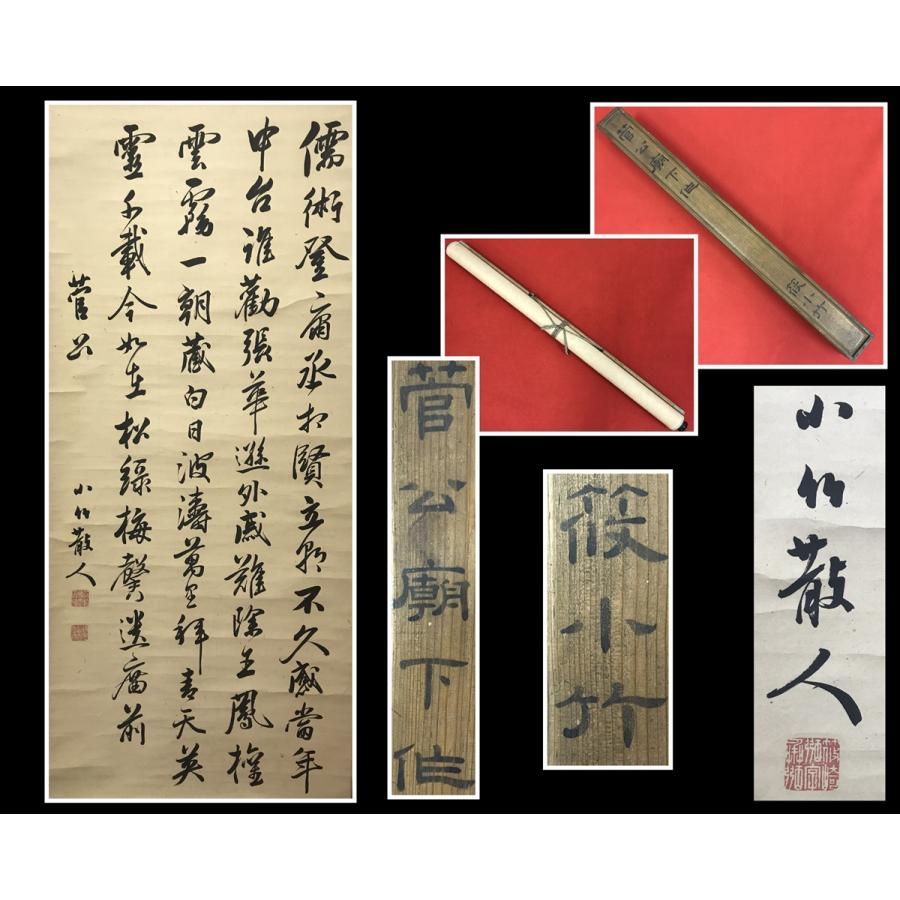 儒術登庸丞相賢立朝不久感當年
中台誰勸張華遜外戚難除王鳳權
雲霧一朝蔵白日波濤萬里拜青天英
靈千載今如在松緑梅馨遶廟前
菅公
小竹散人
菅公廟下作
筱小竹
菅公廟下作
筱小竹
小竹散人